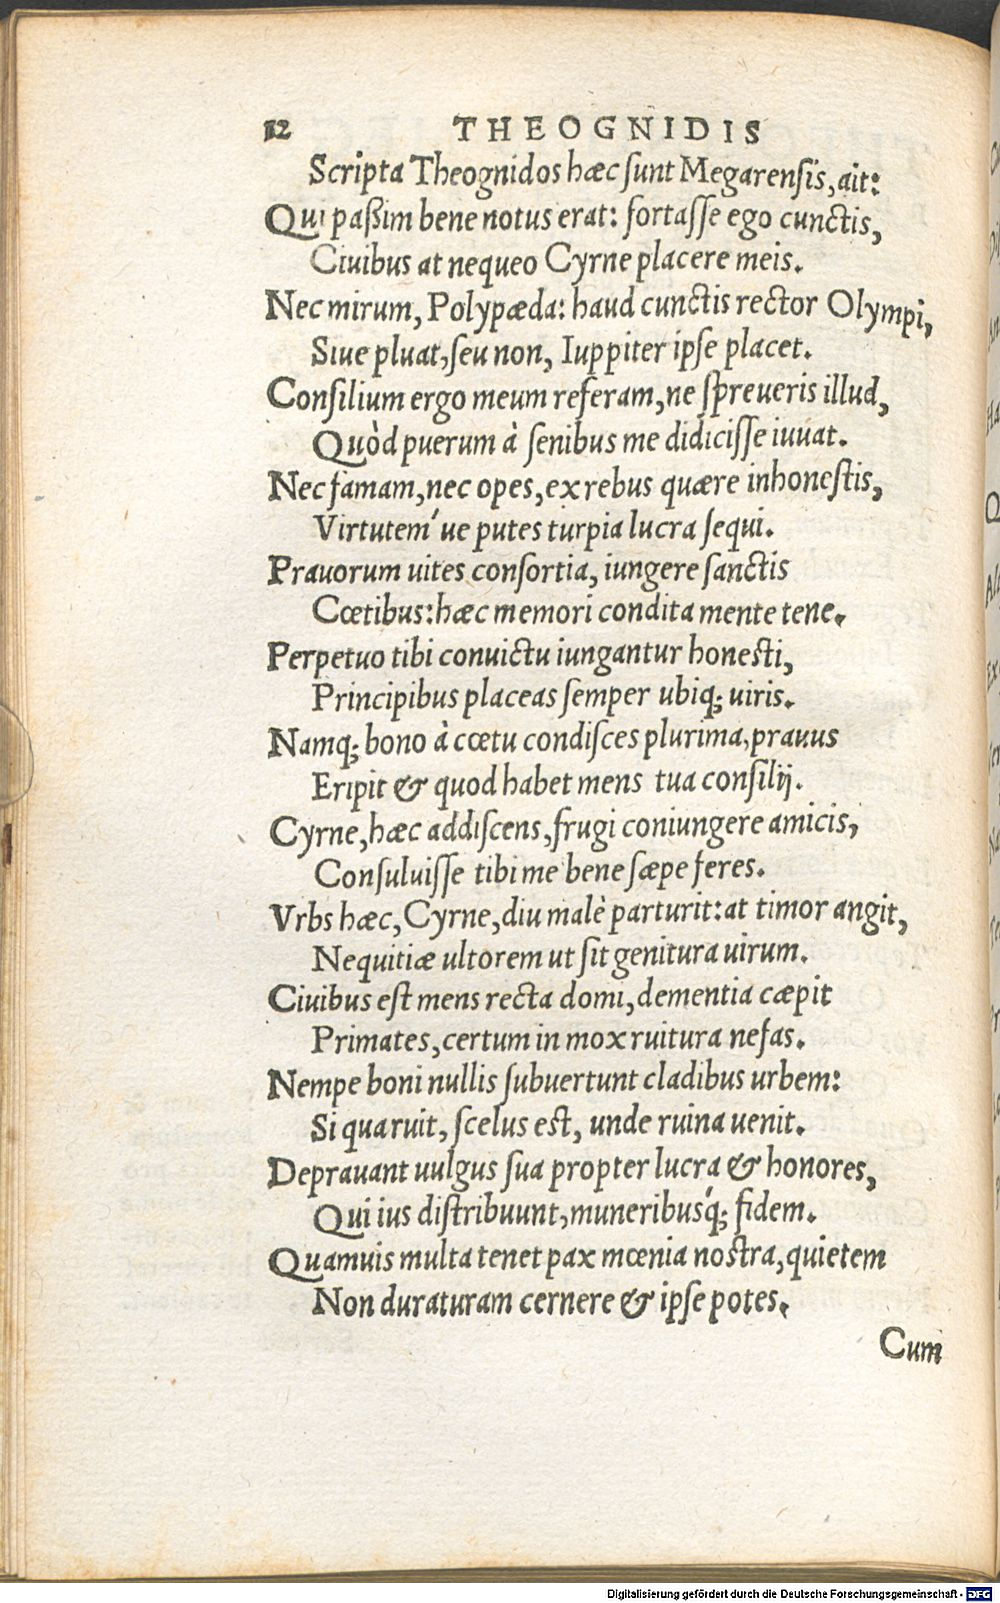 12 THEOGNIDIS
Scripta Theognidos hæc ſunt Megarenſis, ait:
Qui paßim bene notus erat: fortaſſe ego cunctis,
Ciuibus at nequeo Cyrne placere meis.
Nec mirum, Polypæda: haud cunctis rector Olympi,
Siue pluat, ſeu non, Iuppiter ipſe placet.
Conſilium ergo meum referam, ne ſpreueris illud,
Quòd puerum à ſenibus me didiciſſe iuuat.
Nec famam, nec opes, ex rebus quære inhoneſtis,
Virtutem'ue putes turpia lucra ſequi.
Prauorum uites conſortia, iungere ſanctis
Cœtibus: hæc memori condita mente tene.
Perpetuo tibi conuictu iungantur honeſti,
Principibus placeas ſemper ubiq; uiris.
Namq; bono à cœtu condiſces plurima, prauus
Eripit & quod habet mens tua conſilij.
Cyrne, hæc addiſcens, frugi coniungere amicis,
Conſuluiſſe tibi me bene ſæpe feres.
Vrbs hæc, Cyrne, diu malè parturit: at timor angit,
Nequitiæ ultorem ut ſit genitura uirum.
Ciuibus eſt mens recta domi, dementia cæpit
Primates, certum in mox ruitura nefas.
Nempe boni nullis ſubuertunt cladibus urbem:
Si qua ruit, ſcelus eſt, unde ruina uenit.
Deprauant uulgus ſua propter lucra & honores,
Qui ius diſtribuunt, muneribusq́; fidem.
Quamuis multa tenet pax mœnia noſtra, quietem
Non duraturam cernere & ipſe potes.
Cum
Digitalisierung gefördert durch die Deutsche Forschungsgemeinschaft - DFG